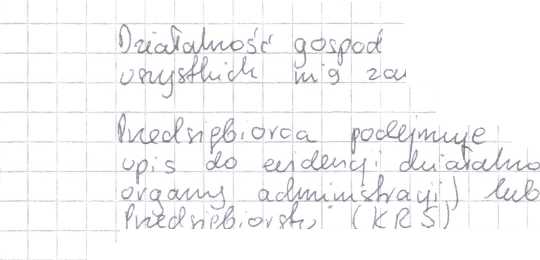 Działalność gospod
wszystkich
Przedsiębiorca podejmuje
wpis do ewidencji działalno
organy administracji) lub
Przedsiębiorstw (KRS)